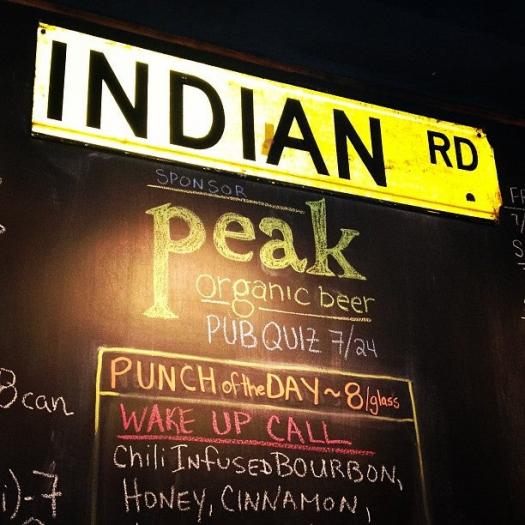 INDIAN RD
SPONSOR
peak
organic beer
PUB QUIZ 7/24
PUNCH of the DAY ~ 8/glass
WAKE UP CALL
Chili INFUSED BOURBON,
HONEY, CINNAMON,
8 can
i) - 7